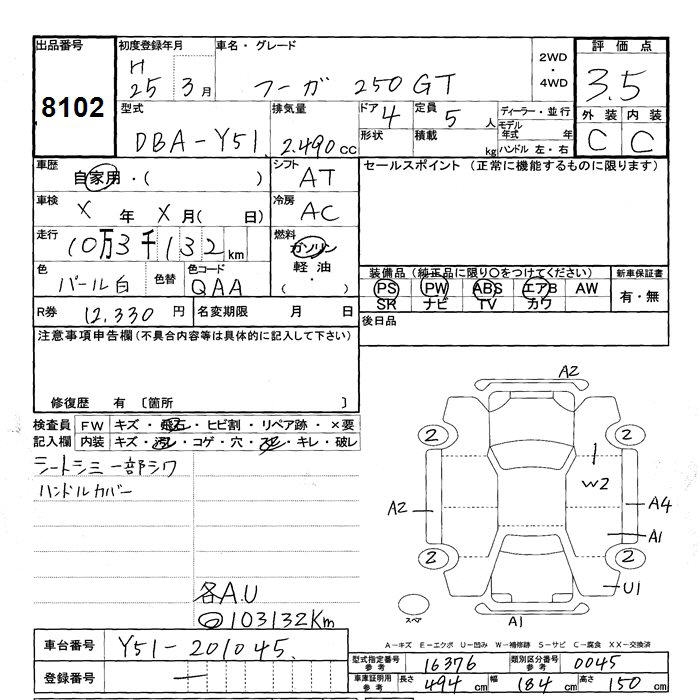 出品番号 初度登録年月 車名・グレード 2WD・4WD 評価点
8102 H25 3月 フーガ 250GT 3.5
型式 排気量 ドア 4 定員 5人 ディーラー・並行 外装 内装
DBA-Y51 2.490cc 形状 積載 kg モデル年式 年 C C
ハンドル 左・右
車歴 自家用・( ) シフト AT セールスポイント (正常に機能するものに限ります)
車検 X年 X月( 日) 冷房 AC
走行 10万3千132km 燃料 ガソリン
軽油・( )
色 パール白 色替 色コード QAA
装備品 (純正品に限り〇をつけてください) 新車保証書
PS PW ABS エアB AW 有・無
SR ナビ TV カワ
R券 12.330円 名変期限 月 日 後日品
注意事項申告欄 (不具合内容等は具体的に記入して下さい)
修復歴 有 〔箇所 〕
検査員 FW キズ・飛石・ヒビ割・リペア跡・×要
記入欄 内装 キズ・汚レ・コゲ・穴・スレ・キレ・破レ
シートシミ 一部シワ
ハンドルカバー
A2
2 2
W2
A2 A4
A1
2 2
U1
スペア A1
各A.U
103132Km
A-キズ E-エクボ U-凹み W-補修跡 S-サビ C-腐食 XX-交換済
車台番号 Y51-201045
型式指定番号 参考 16376 類別区分番号 参考 0045
登録番号 —
車庫証明用 参考 長さ 494cm 幅 184cm 高さ 150cm